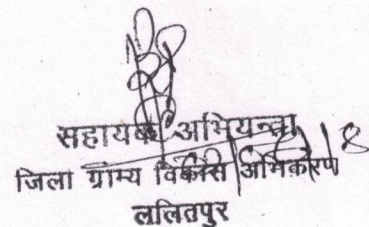 सहायक अभियन्ता
जिला ग्राम्य विकास अभिकरण
ललितपुर